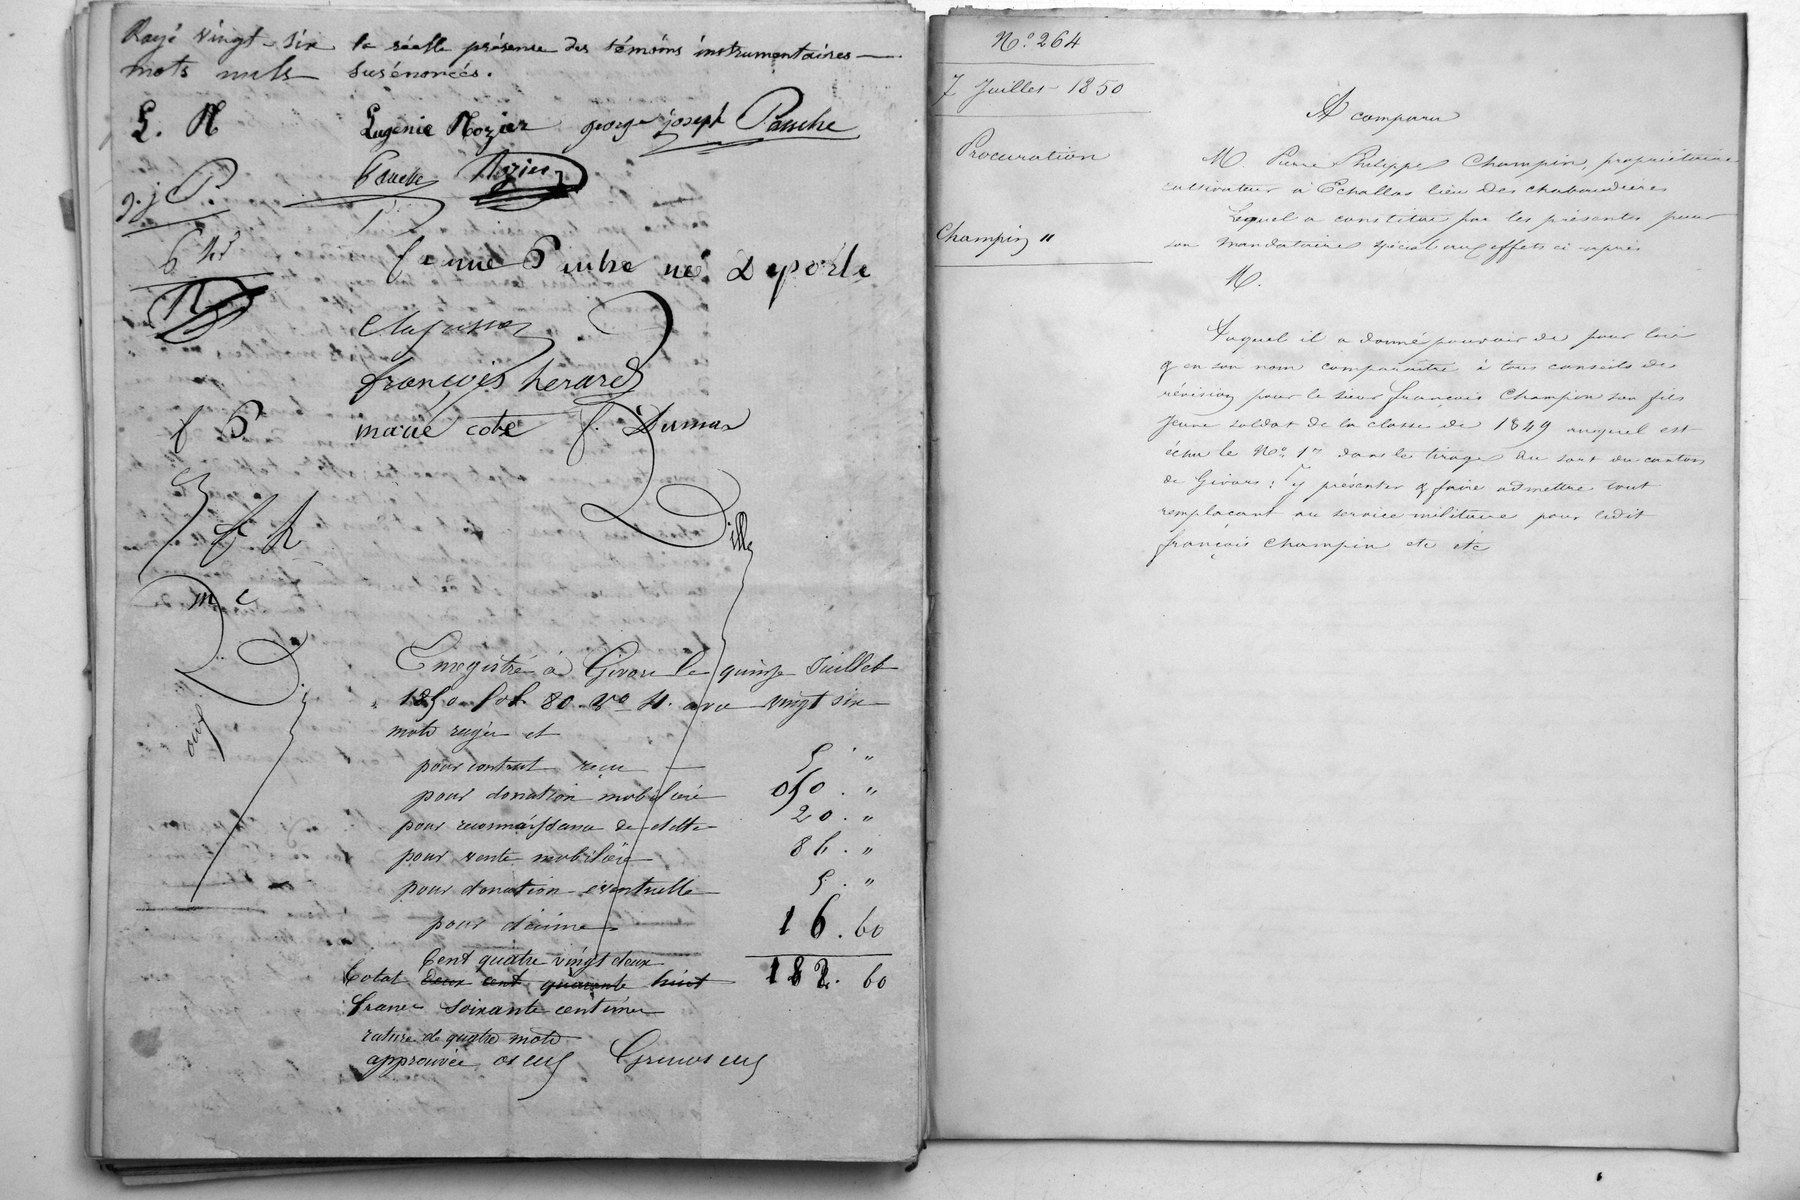 Rayé vingt-six
mots nuls
la réelle présence des témoins instrumentaires
susénoncés.
E. R
Eugénie Rozier george joseph Pauche
g. j P.
Rozier
femme née Deporte
françois herard
f P
marie cote f. Dumas
f h
m c
Enregistré à Givors le quinze Juillet
1850 fol. 80 vo avec vingt six
mots rayés et
pour contrat reçu 5 "
pour donation mobilière 050 . "
pour reconnaissance de dette 20 . "
pour vente mobilière 86 . "
pour donation éventuelle 5 . "
pour décime 16 . 60
Cent quatre vingt deux
Total deux cent quarante huit 182 . 60
francs soixante centimes
rature de quatre mots
approuvée
No. 264
7 Juillet 1850
Procuration
Champin "
A comparu
M. Pierre Philippe Champin, propriétaire
cultivateur à Echallas lieu des chaboudières
Lequel a constitué par les présentes pour
son mandataire spécial aux effets ci après
M.
Auquel il a donné pouvoir de pour lui
& en son nom comparaître à tous conseils de
révision pour le sieur françois Champin son fils
Jeune soldat de la classe de 1849 auquel est
échu le No. 1er dans le tirage au sort du canton
de Givors ; y présenter & faire admettre tout
remplaçant au service militaire pour ledit
françois Champin etc etc